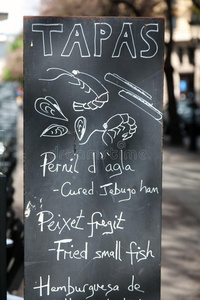 TAPAS
Pernil d'agla
- Cured Jabugo ham
Peixet fregit
- Fried small fish
Hamburguesa de